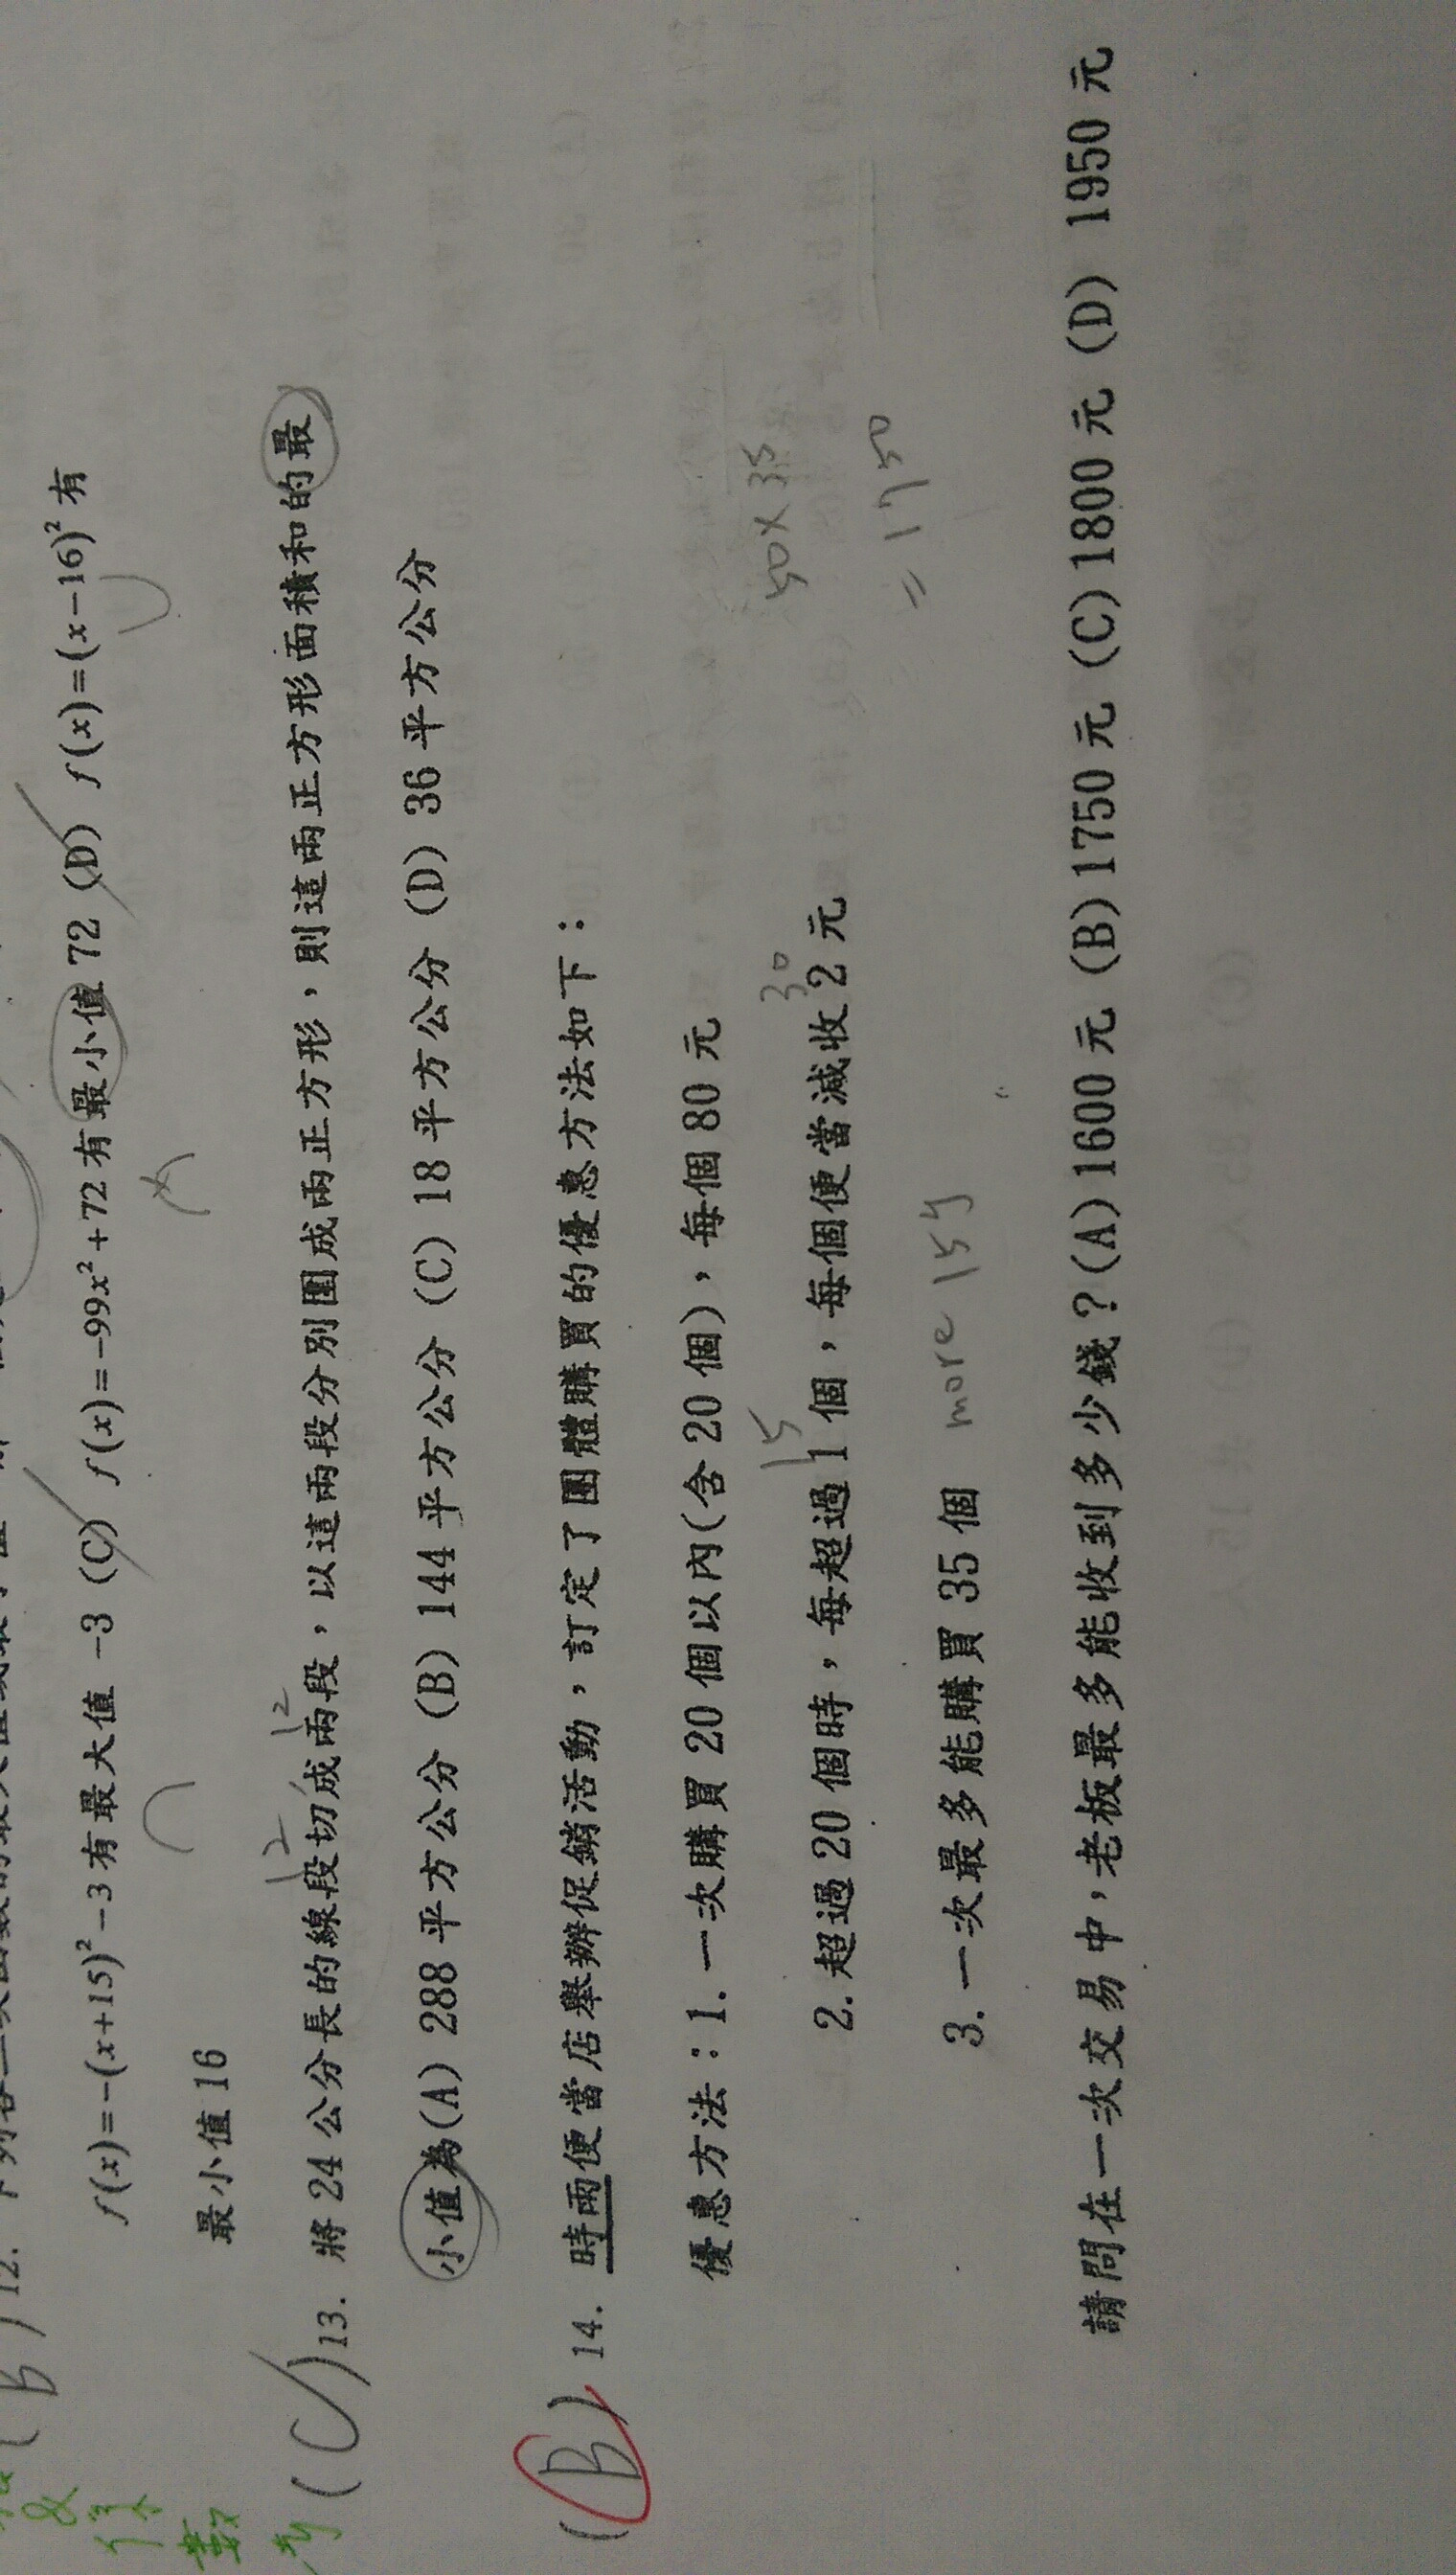 (B) 12.
f(x)=-(x+15)²-3有最大值 -3 (C) f(x)=-99x²+72有最小值72 (D) f(x)=(x-16)²有
最小值16
12 12
(C) 13. 將24公分長的線段切成兩段，以這兩段分別圍成兩正方形，則這兩正方形面積和的最
小值為(A) 288平方公分 (B) 144平方公分 (C) 18平方公分 (D) 36平方公分
(B) 14. 時雨便當店舉辦促銷活動，訂定了團體購買的優惠方法如下：
優惠方法：1. 一次購買20個以內(含20個)，每個80元
15 30 50×35
2. 超過20個時，每超過1個，每個便當減收2元
= 1750
3. 一次最多能購買35個 more 15个
請問在一次交易中，老板最多能收到多少錢？(A)1600元 (B)1750元 (C)1800元 (D) 1950元